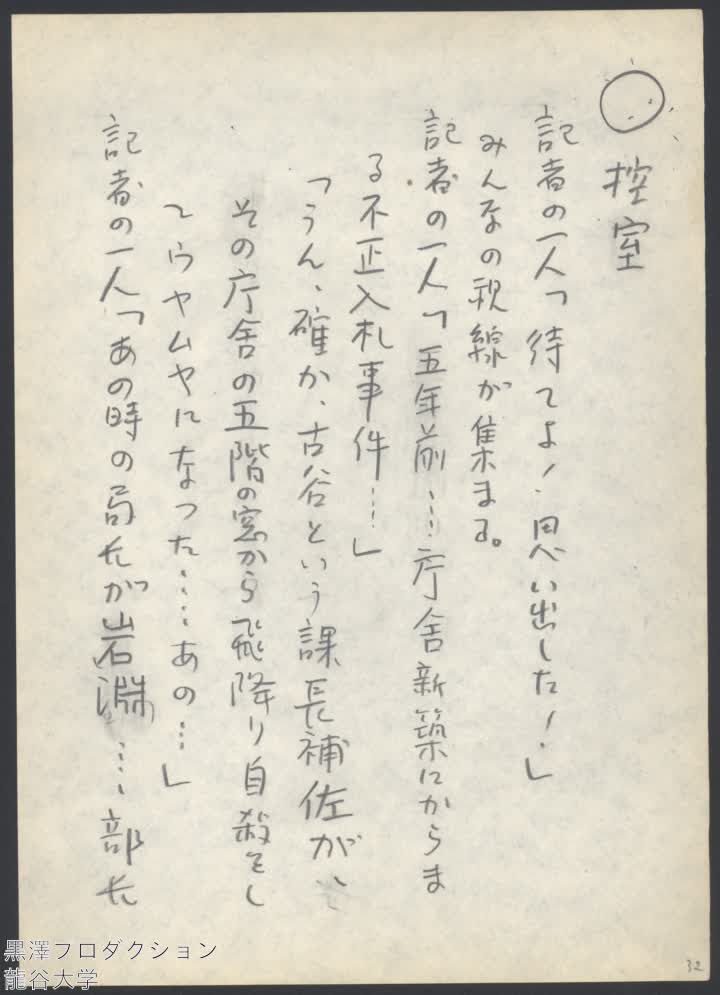 控室
記者の一人「待てよ！思い出した！」
みんなの視線が集まる。
記者の一人「五年前…庁舎新築にからま
る不正入札事件…」
「うん、確か、古谷という課長補佐が、
その庁舎の五階の窓から飛降り自殺をし
てウヤムヤになった……あの…」
記者の一人「あの時の局長が岩淵…部長
32
黒澤プロダクション
龍谷大学